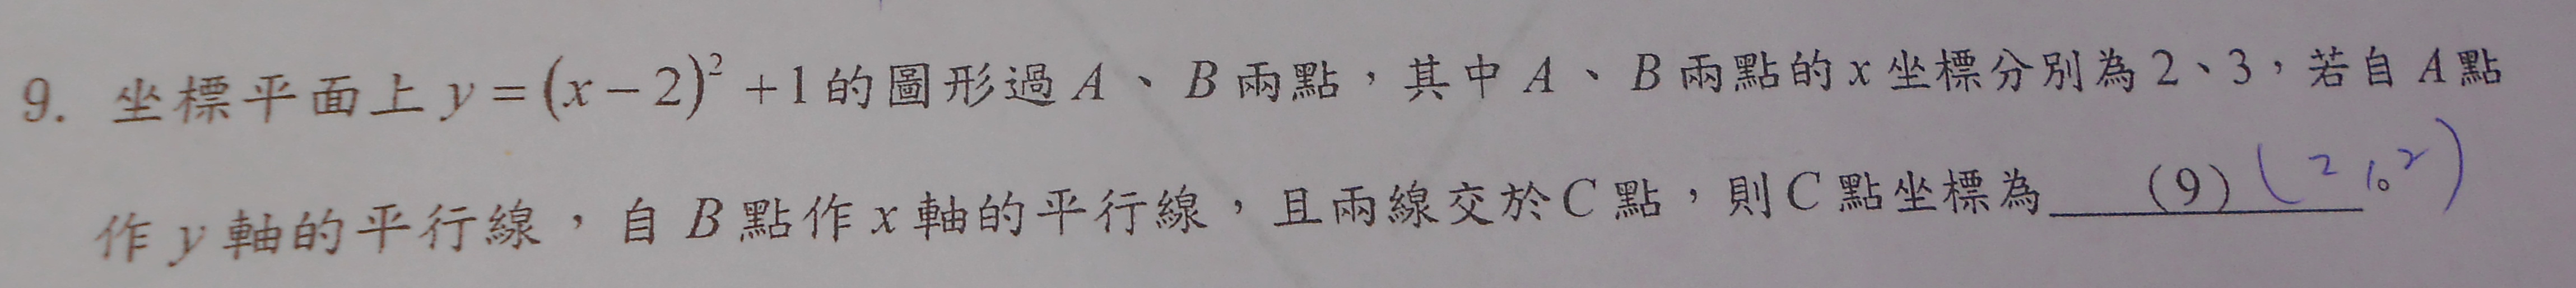 9. 坐標平面上 y=(x-2)²+1的圖形過A、B兩點,其中A、B兩點的x坐標分別為2、3,若自A點
作y軸的平行線,自B點作x軸的平行線,且兩線交於C點,則C點坐標為 (9) (2, 2)。